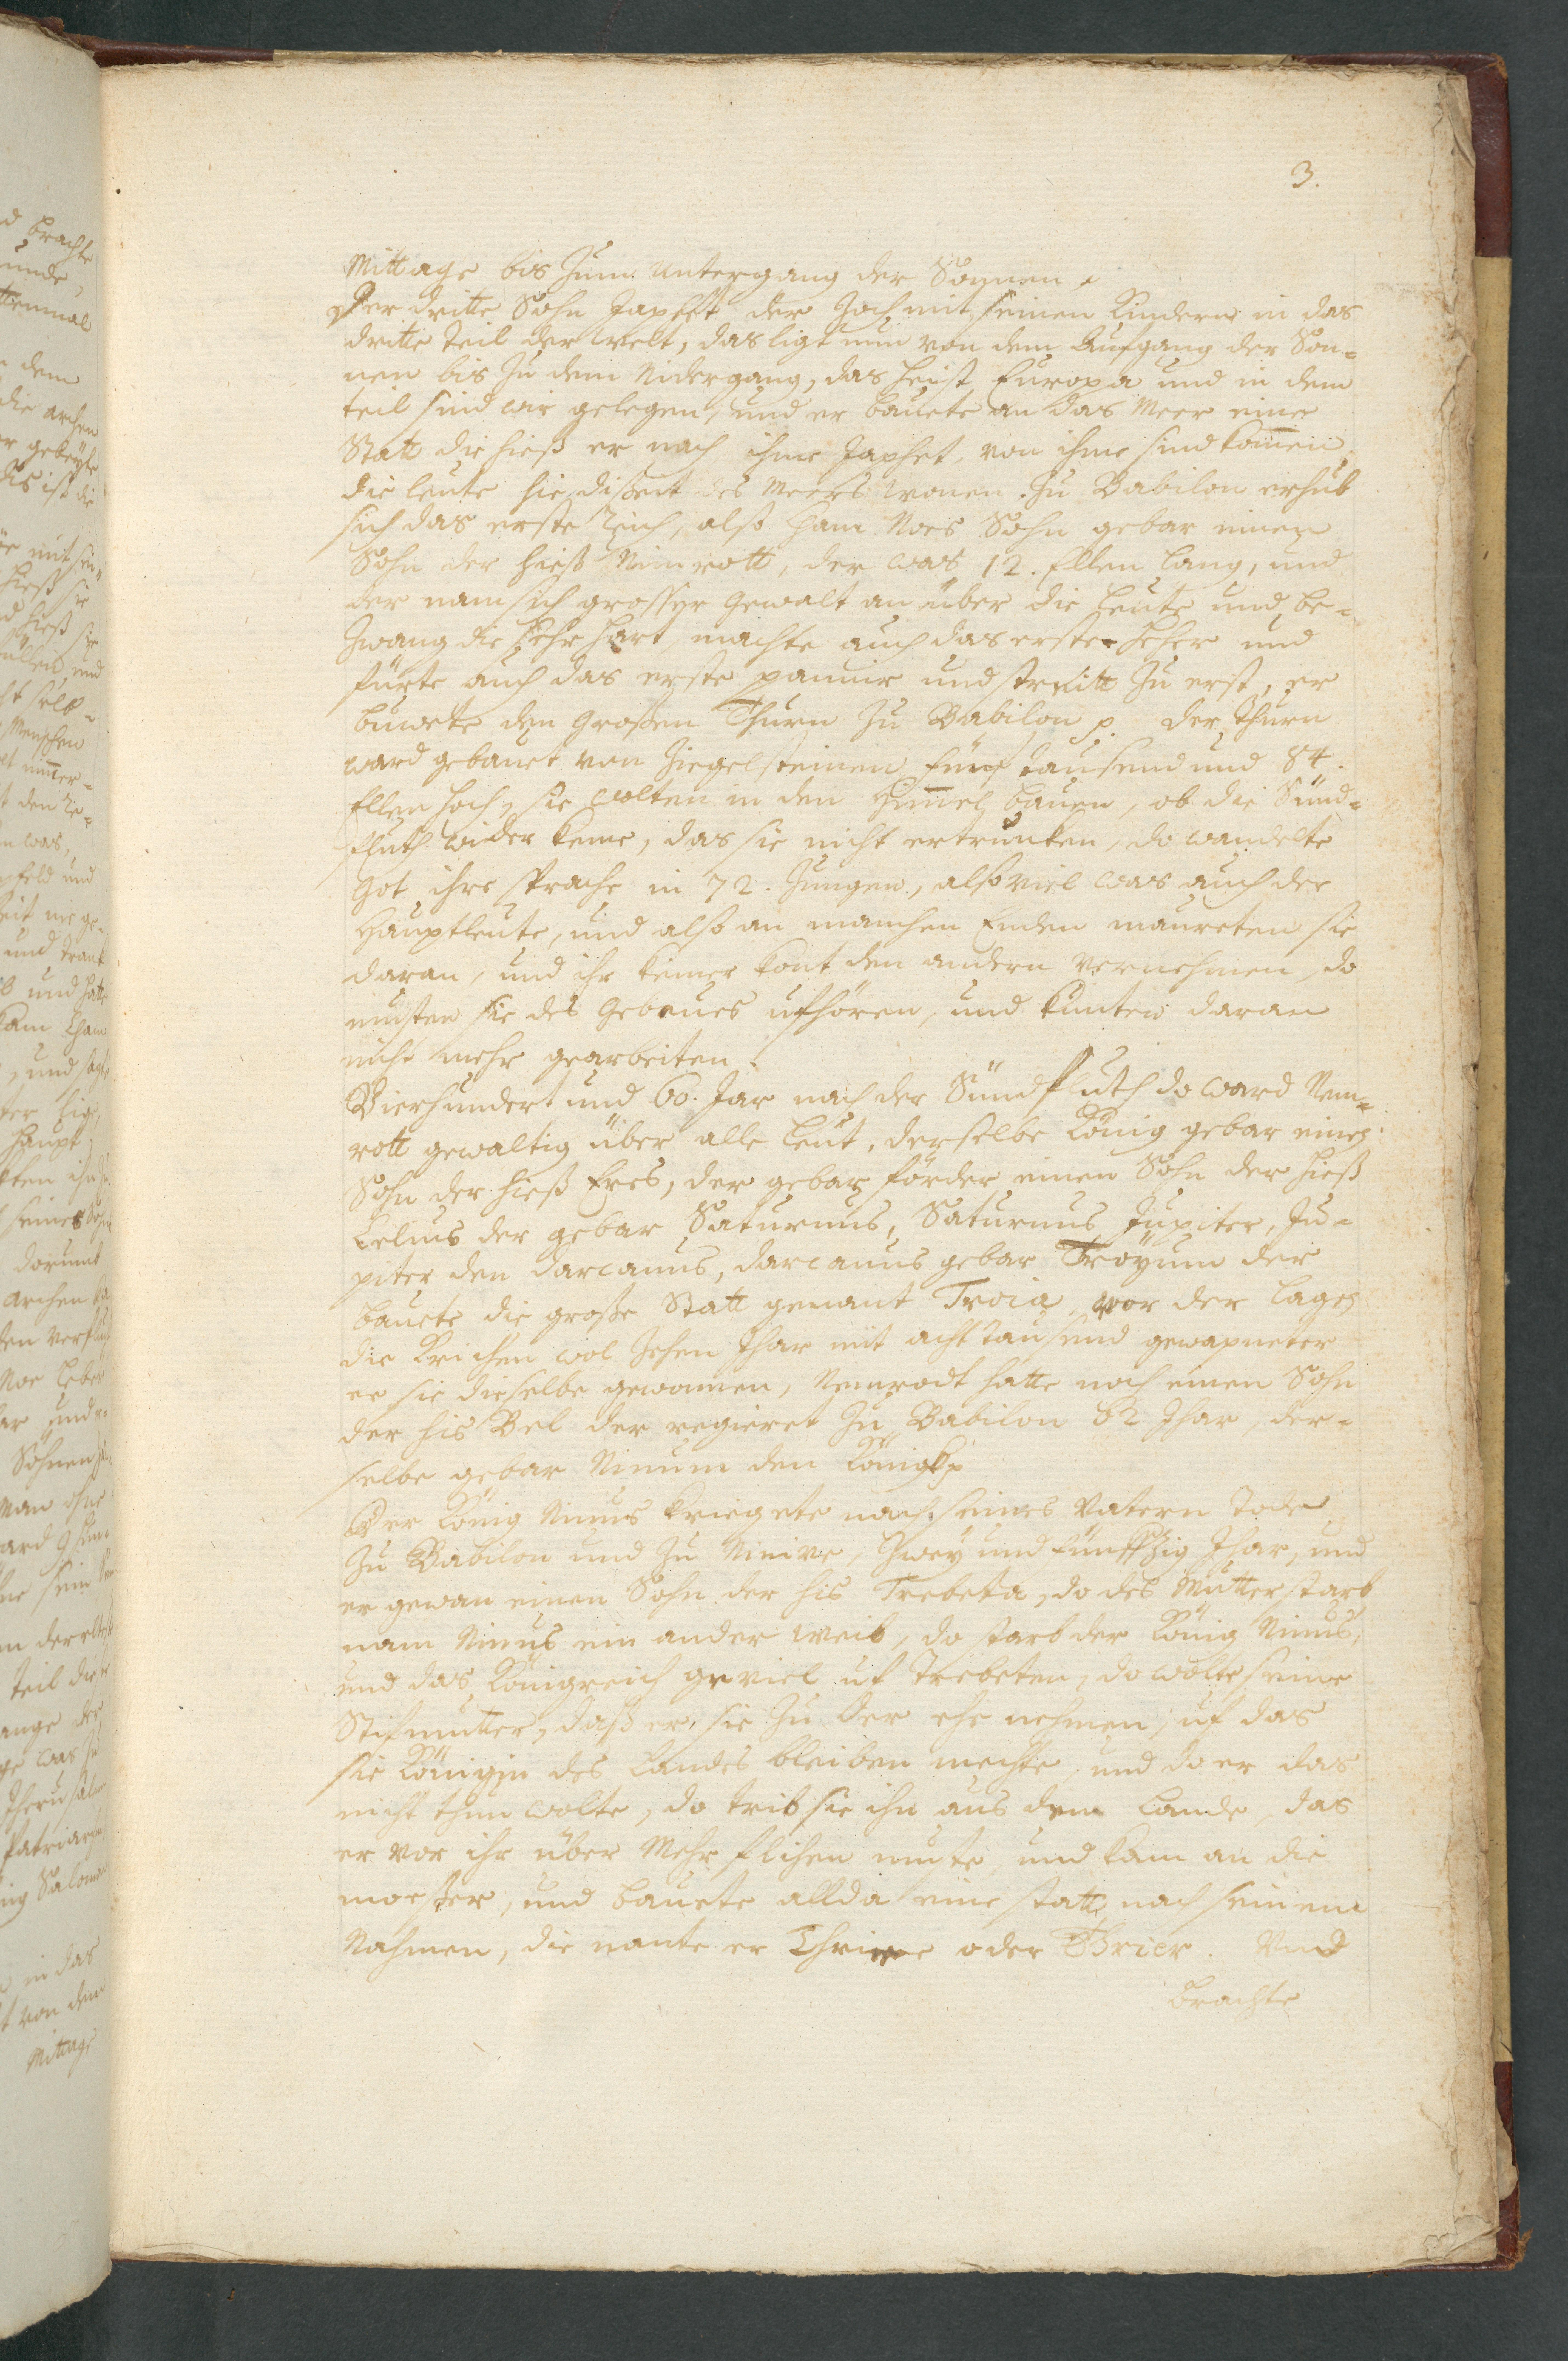 3.
Mittags bis zum Untergang der Sonnen.
Der dritte Sohn Japhet der zoch mit seinen Kindern in das
dritte Teil der Welt, das ligt nun von dem Aufgang der Son-
nen bis zu dem Nidergang, das heist Europa und in dem
teil sind wir gelegen, und er bauete an das Meer eine
Statt die hieß er nach ihme Japhet, von ihme sind komen
die leute hie dißeit des Meers wonen. Zu Babilon erhub
sich das erste Reich, alß Ham Noes Sohn gebar einen
Sohn der hieß Nimrott, der was 12. Ellen lang, und
der nam sich grosser Gewalt an über die Leute und be-
zwang die sehr hart, machte auch das erste Heher und
fürte auch das erste pannir und streitt zu erst, er
buwete den Großen Thurn zu Babilon p. der Thurn
ward gebauet von Ziegelsteinen fünf tausend und 84.
Ellen hoch, sie wolten in den Himel bauen, ob die Sünd-
fluth wider keme, das sie nicht ertrunken, do wandelte
Got ihre sprache in 72. Zungen, also viel was auch der
Hauptleute, und also an manchen Enden maureten sie
daran, und ihr keiner kont den andern vernehmen, do
musten sie des Gebeues ufhören, und kunten daran
nicht mehr gearbeiten.
Vierhundert und 60. Jar nach der Sündfluth do ward Nem-
rott gewaltig über alle Leut, derselbe König gebar einen
Sohn der hieß Eres, der gebar förder einen Sohn der hieß
Celius der gebar Saturnus, Saturnus Jupiter, Ju-
piter den darcanus, darcanus gebar Troyum der
bauete die große Statt genant Troia, vor der lagen
die Krichen wol zehen Jhar mit acht tausend gewapneter
ee sie dieselbe gewonnen, Nemrodt hatte noch einen Sohn
der his Bel der regieret zu Babilon 62 Jhar, der-
selbe gebar Ninum den König p
Der König Ninus kriegete nach seines Vatern Tode
zu Babilon und zu Ninive, zwey und fünffzig Jhar, und
er gewan einen Sohn der his Trebeta, do des Mutter starb
nam Ninus ein ander Weib, do starb der König Ninus,
und das Königreich geviel uf Trebeten, do wolte seine
Stifmutter, daß er sie zu der ehe nehmen, uf das
sie Königin des Landes bleiben mechte, und do er das
nicht thun wolte, do trib sie ihn aus dem Lande, das
er vor ihr über Mehr flihen muste, und kam an die
mosser, und bauete allda eine statt nach seinem
Nahmen, die nante er oder Thrier. Und
brachte